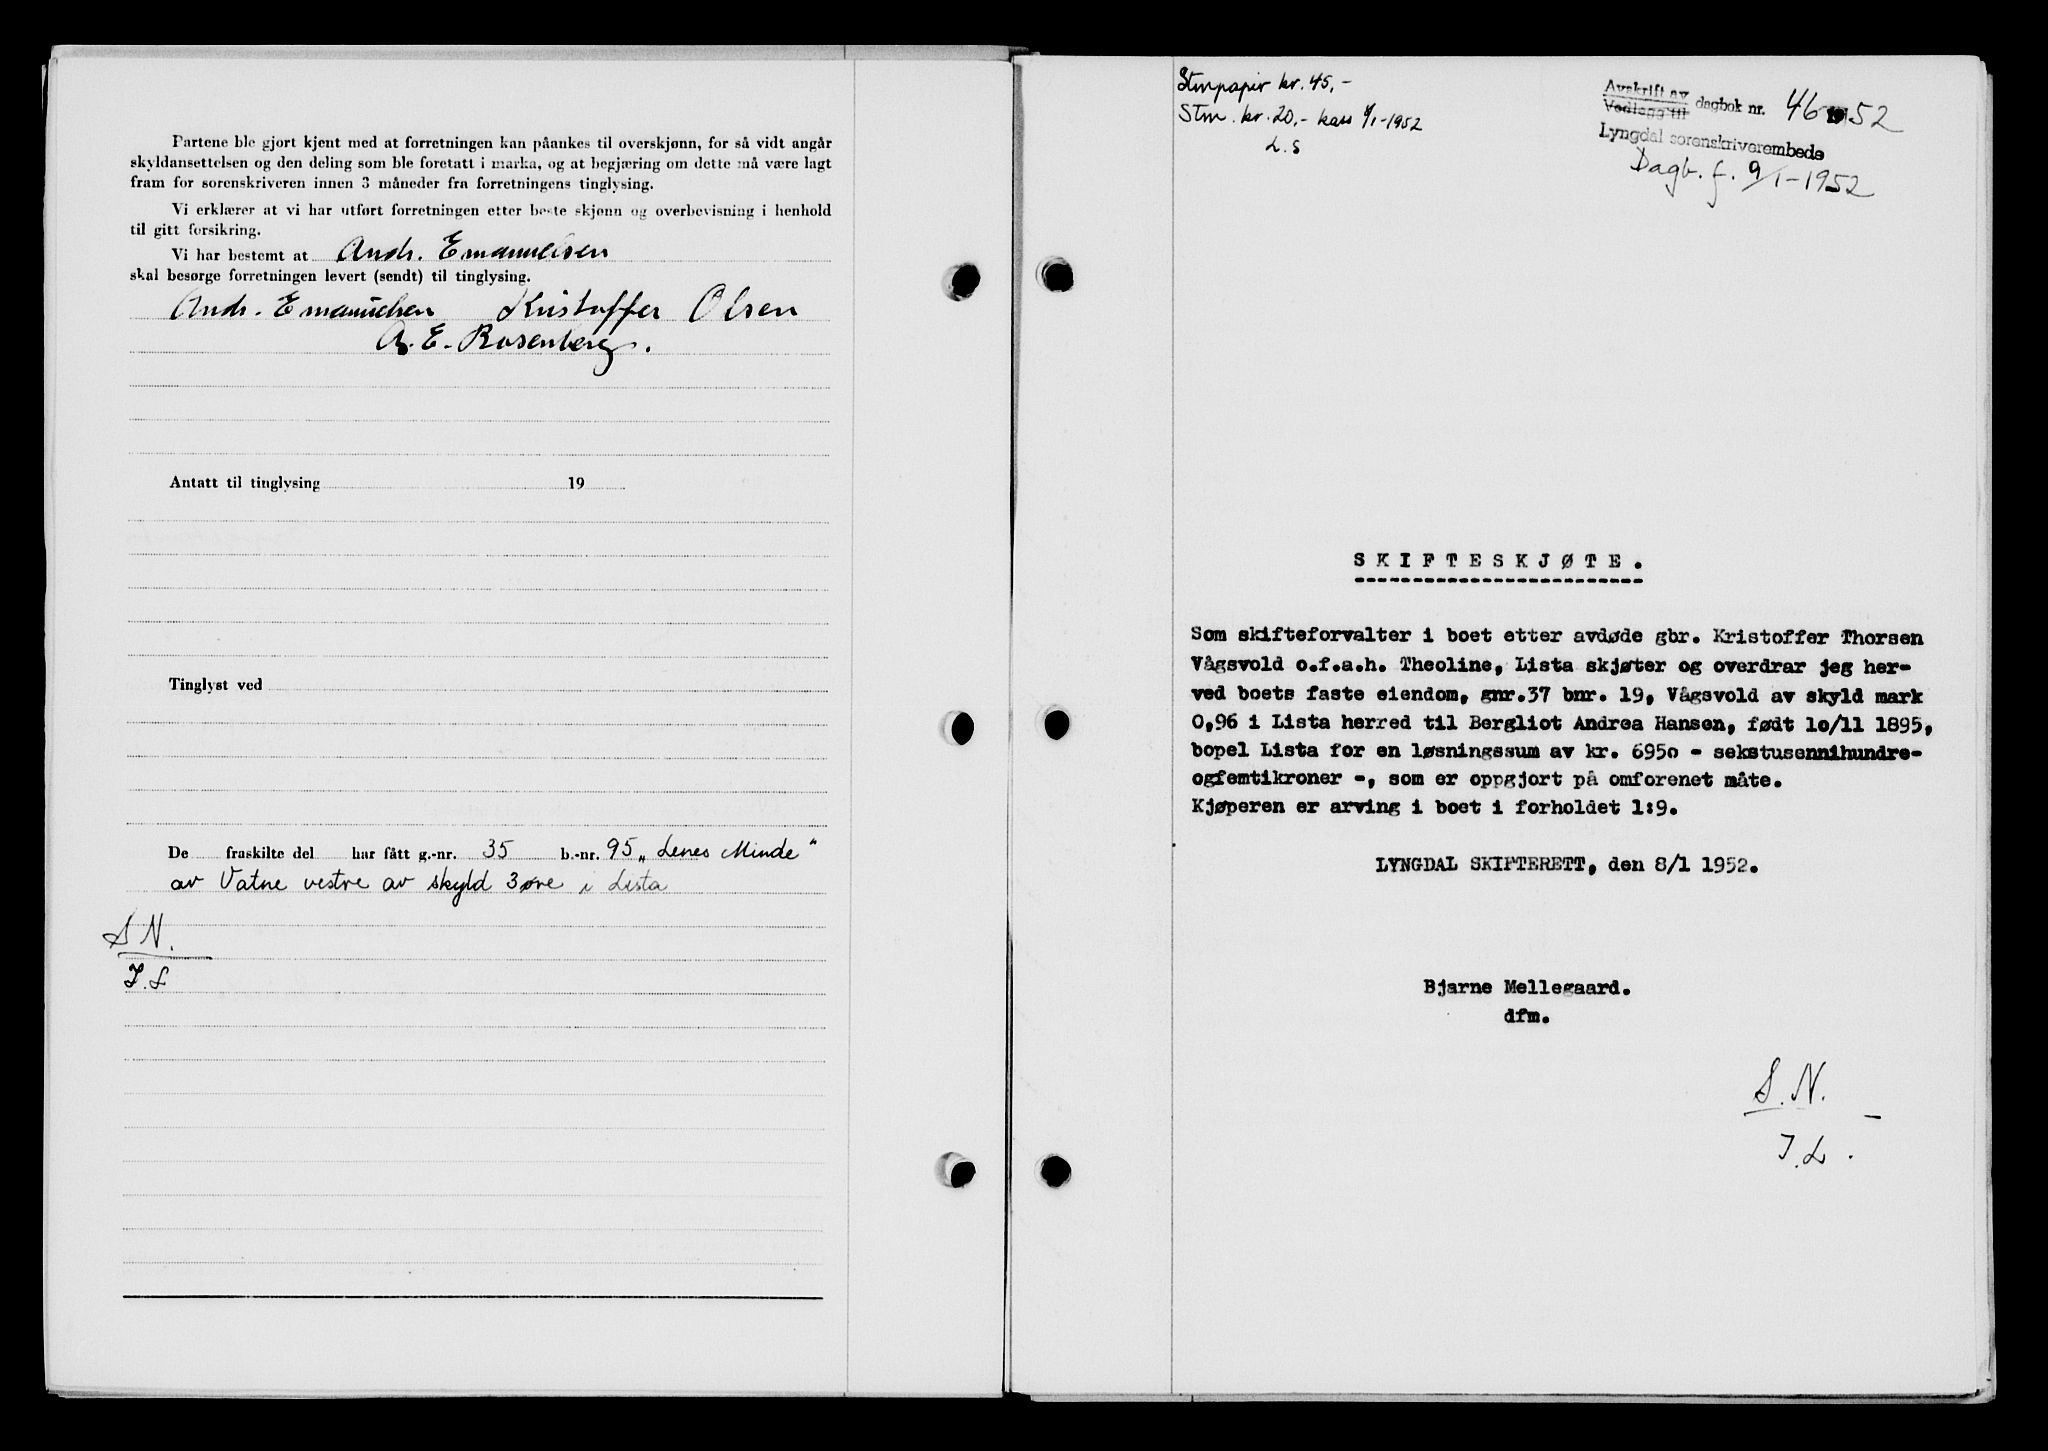 Partene ble gjort kjent med at forretningen kan påankes til overskjønn, for så vidt angår
skyldansettelsen og den deling som ble foretatt i marka, og at begjæring om dette må være lagt
fram for sorenskriveren innen 3 måneder fra forretningens tinglysing.
Vi erklærer at vi har utført forretningen etter beste skjønn og overbevisning i henhold
til gitt forsikring.
Vi har bestemt at Andr. Emanuelsen
skal besørge forretningen levert (sendt) til tinglysing.
Andr. Emanuelsen Kristoffer Olsen
A. E. Rosenberg.
Antatt til tinglysing 19
Tinglyst ved
De fraskilte del har fått g.-nr. 35 b.-nr. 95 „Lenes Minde"
av Vatne vestre av skyld 3 øre i Lista
S N.
I. L
Stmpapir kr. 45,-
Stm. kr. 20,- kass 9/1-1952
L. S
Avskrift av
Vedlegg til dagbok nr. 46 52
Lyngdal sorenskriverembede
Dagb. f. 9/1-1952
SKIFTESKJØTE.
Som skifteforvalter i boet etter avdøde gbr. Kristoffer Thorsen
Vågsvold o.f.a.h. Theoline, Lista skjøter og overdrar jeg her-
ved boets faste eiendom, gnr.37 bnr. 19, Vågsvold av skyld mark
0,96 i Lista herred til Bergliot Andrea Hansen, født 10/11 1895,
bopel Lista for en løsningssum av kr. 6950 - sekstusennihundre-
ogfemtikroner -, som er oppgjort på omforenet måte.
Kjøperen er arving i boet i forholdet 1:9.
LYNGDAL SKIFTERETT, den 8/1 1952.
Bjarne Mellegaard.
dfm.
S. N.
I. L.